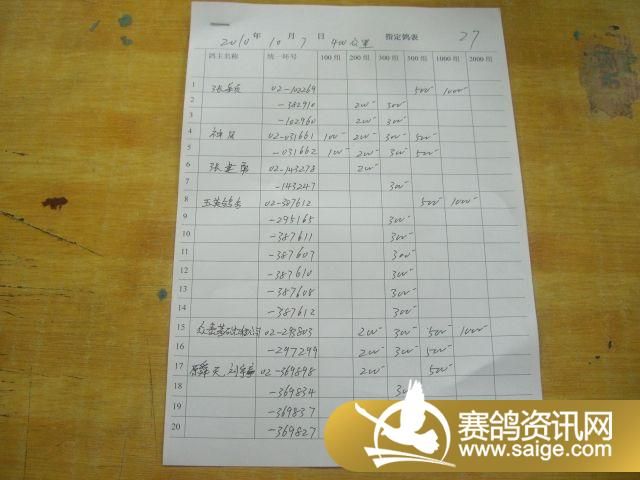 2010年 10月 7日 400公里 指定鸽表 27
鸽主名称 统一环号 100 组 200 组 300 组 500 组 1000 组 2000 组
1 02-102269 500 1000
2 -382910 200 300
3 -102960 200 300
4 02-031661 100 200 300 500
5 -031662 100 200 300 500
6 02-143278 200
7 -143247 300
8 02-387612 500 1000
9 -295165 300
10 -387611 300
11 -387607 300
12 -387610 300
13 -387608 300
14 -387612 300
15 02-298803 200 300 500 1000
16 -297299 200 300 500
17 02-369898 200 500
18 -369834
19 -369837
20 -369827
赛鸽资讯网
www.saige.com